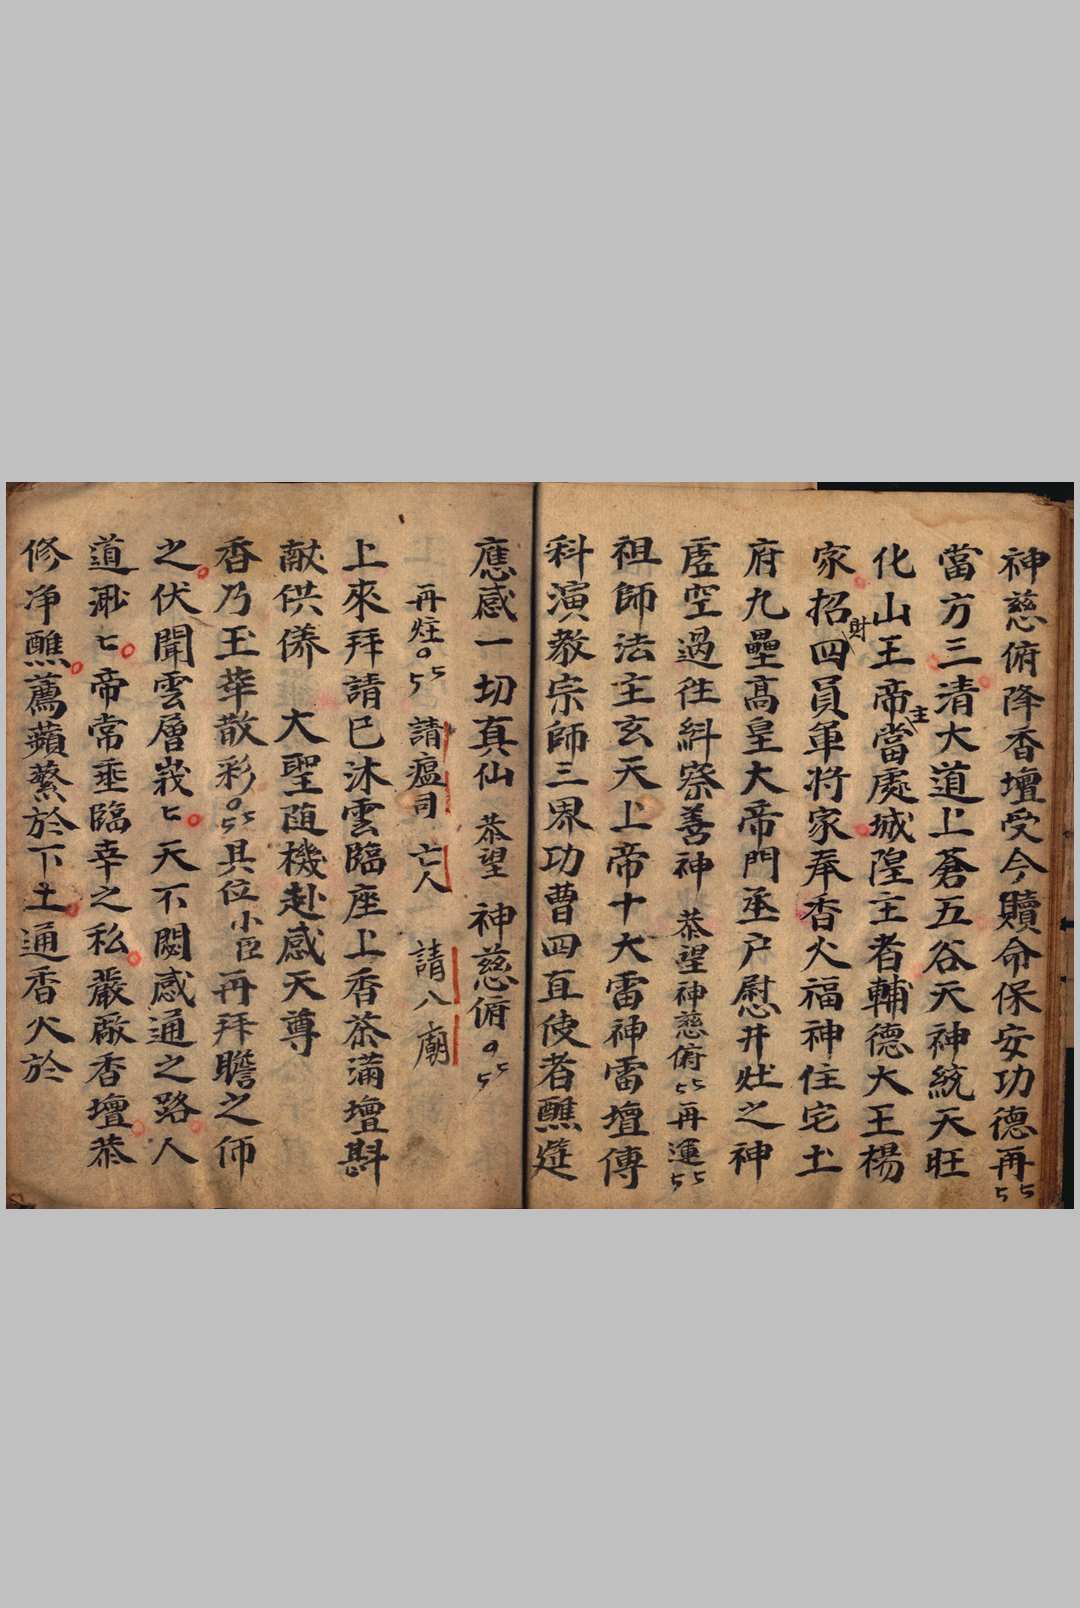 神慈俯降香壇受今贖命保安功德再
當方三清大道上蒼五谷天神統天旺
化山王帝主當處城隍主者輔德大王楊
家招財四員軍將家奉香火福神住宅土
府九壘高皇大帝門丞户慰井灶之神
虛空過往糾察善神 恭望神慈俯 再運
祖師法主玄天上帝十大雷神雷壇傳
科演教宗師三界功曹四直使者醮筵
應感一切真仙 恭望 神慈俯
再炷 請瘟司 亡人 請八廟
上來拜請已沐雲臨座上香茶滿壇斟
献供養 大聖随機赴感天尊
香乃玉華散彩 具位小臣再拜瞻之师
之伏聞雲層峩匕天不閟感通之路人
道渺匕帝常垂臨幸之私嚴厥香壇恭
修净醮薦蘋蘩於下土通香火於